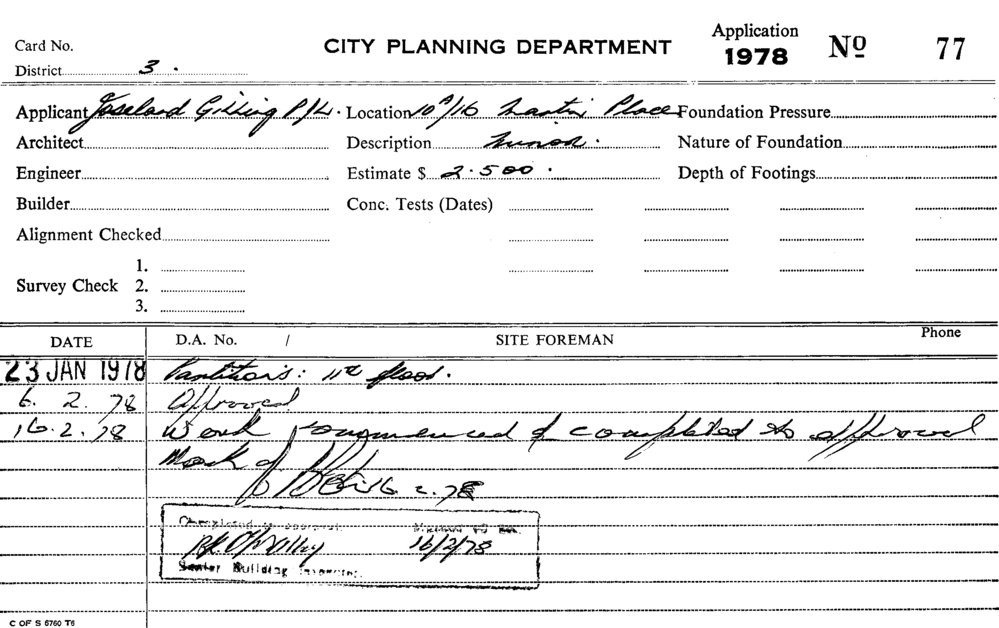 Application
Card No. CITY PLANNING DEPARTMENT 1978 Nº 77
District 3.
Applicant Joseland Gilling P/L. Location 10A/16 Martin Place Foundation Pressure
Architect Description Minor. Nature of Foundation
Engineer Estimate $ 2.500. Depth of Footings
Builder Conc. Tests (Dates)
Alignment Checked
1.
Survey Check 2.
3.
DATE D.A. No. / SITE FOREMAN Phone
23 JAN 1978 Partitions: 11th floor.
6. 2. 78 Approved
16.2.78 Work commenced & completed to approval
Mark of 16.2.78
Completed to approval.
16/2/78
Senior Building Inspector.
C OF S 5760 T6